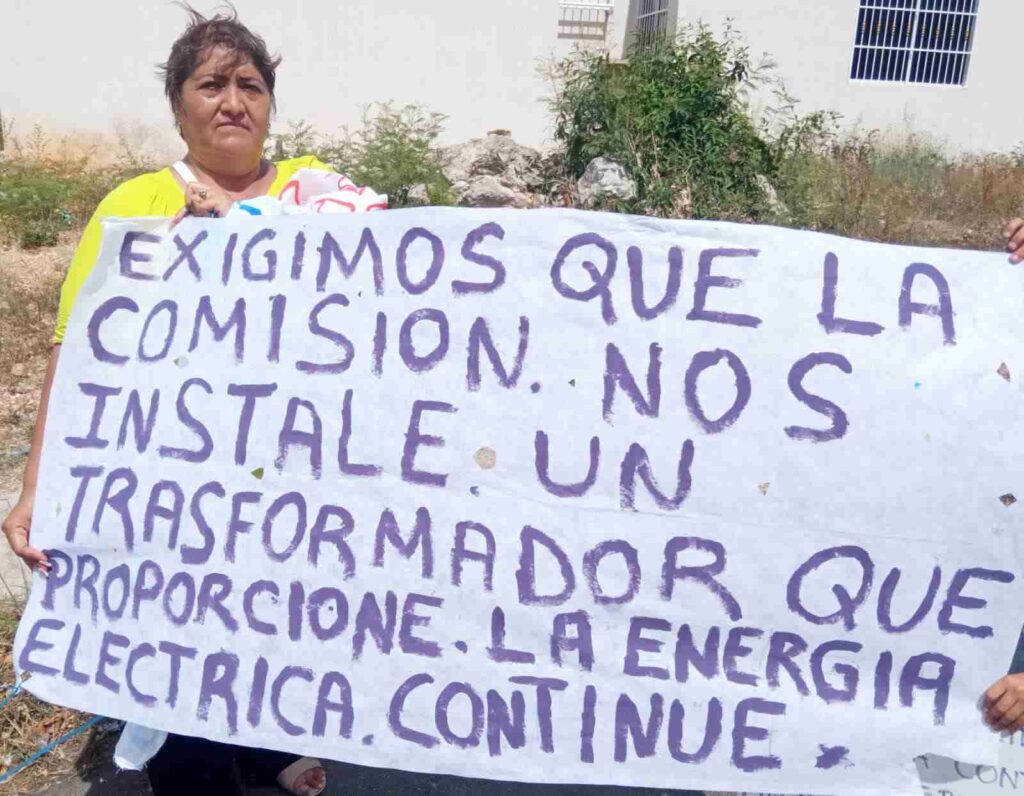 EXIGIMOS QUE LA
COMISION. NOS
INSTALE. UN
TRASFORMADOR QUE
PROPORCIONE. LA ENERGIA
ELECTRICA. CONTINUE.